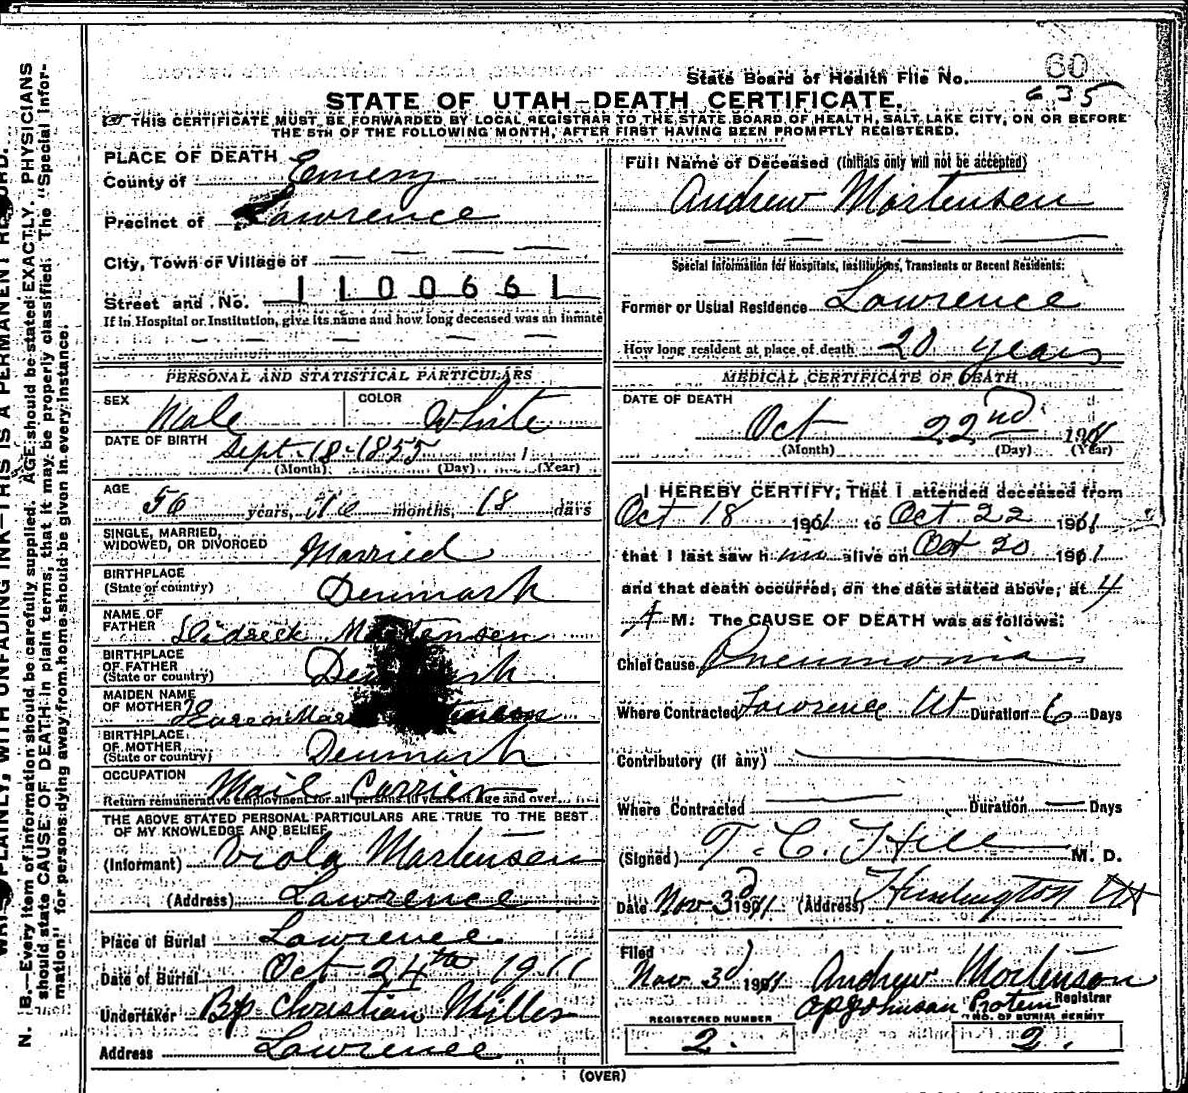 N. B.—Every item of information should be carefully supplied. AGE should be stated EXACTLY. PHYSICIANS
should state CAUSE OF DEATH in plain terms, that it may be properly classified. The "Special Infor-
mation" for persons dying away from home should be given in every instance.
PLAINLY, WITH UNFADING INK—THIS IS A PERMANENT RECORD.
State Board of Health File No. 60
635
STATE OF UTAH—DEATH CERTIFICATE.
THIS CERTIFICATE MUST BE FORWARDED BY LOCAL REGISTRAR TO THE STATE BOARD OF HEALTH, SALT LAKE CITY, ON OR BEFORE
THE 5TH OF THE FOLLOWING MONTH, AFTER FIRST HAVING BEEN PROMPTLY REGISTERED.
PLACE OF DEATH
County of Emery
Precinct of Lawrence
City, Town or Village of
Street and No. 1100661
If in Hospital or Institution, give its name and how long deceased was an inmate
PERSONAL AND STATISTICAL PARTICULARS
SEX Male COLOR White
DATE OF BIRTH Sept. 18-1855
(Month) (Day) (Year)
AGE
56 years, months, 18 days
SINGLE, MARRIED,
WIDOWED, OR DIVORCED Married
BIRTHPLACE
(State or country) Denmark
NAME OF
FATHER Mortensen
BIRTHPLACE
OF FATHER
(State or country) Denmark
MAIDEN NAME
OF MOTHER
BIRTHPLACE
OF MOTHER
(State or country) Denmark
OCCUPATION Mail Carrier
Return remunerative employment for all persons 10 years of Age and over
THE ABOVE STATED PERSONAL PARTICULARS ARE TRUE TO THE BEST
OF MY KNOWLEDGE AND BELIEF
(Informant) Viola Mortensen
(Address) Lawrence
Place of Burial Lawrence
Date of Burial Oct 24th 1911
Undertaker Bp Christian Miller
Address Lawrence
Full Name of Deceased (Initials only will not be accepted)
Andrew Mortensen
Special Information for Hospitals, Institutions, Transients or Recent Residents:
Former or Usual Residence Lawrence
How long resident at place of death 20 years
MEDICAL CERTIFICATE OF DEATH
DATE OF DEATH
Oct 22nd 1911
(Month) (Day) (Year)
I HEREBY CERTIFY; That I attended deceased from
Oct 18 1911 to Oct 22 1911
that I last saw him alive on Oct 20 1911
and that death occurred, on the date stated above, at 4
A M. The CAUSE OF DEATH was as follows:
Chief Cause Pneumonia
Where Contracted Lawrence Ut Duration 6 Days
Contributory (if any)
Where Contracted Duration Days
(Signed) T. C. Hill M. D.
Date Nov 3d 1911 (Address) Huntington Ut
Filed
Nov 3d 1911 Andrew Mortenson
OP Johnson Protem Registrar
REGISTERED NUMBER NO. OF BURIAL PERMIT
2. 2.
(OVER)